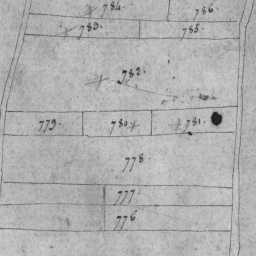 784. 786.
783. 785.
782.
779. 780 781.
778
777
776